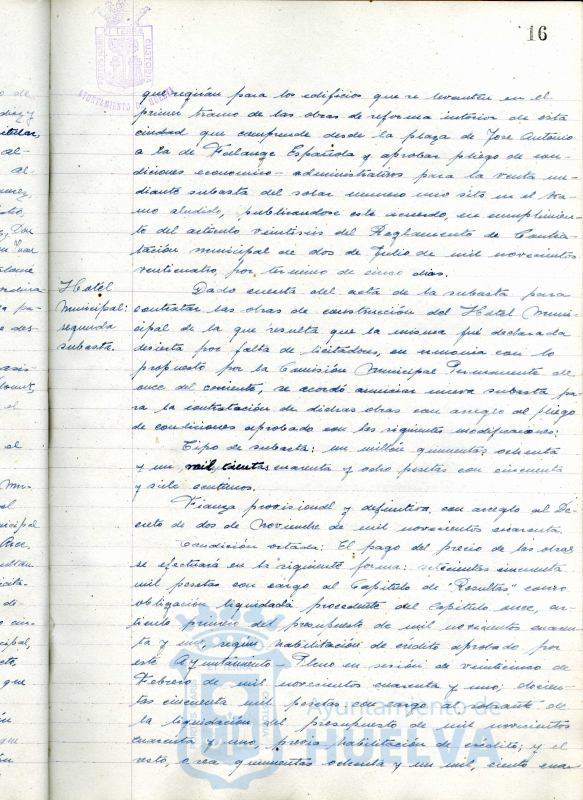 16
AYUNTAMIENTO DE HUELVA
que regirán para los edificios que se levanten en el
primer tramo de las obras de reforma interior de esta
ciudad que comprende desde la plaza de José Antonio
a la de Falange Española y aprobar pliego de con-
diciones económico-administrativas para la venta me-
diante subasta del solar número uno sito en el tra-
mo aludido, publicándose este acuerdo, en cumplimien-
to del artículo veintiséis del Reglamento de Contra-
tación municipal de dos de Julio de mil novecientos
veinticuatro, por término de cinco días.
Hotel
Municipal:
segunda
subasta.
Dada cuenta del acta de la subasta para
contratar las obras de construcción del Hotel Muni-
cipal de la que resulta que la misma fué declarada
desierta por falta de licitadores, en armonía con lo
propuesto por la Comisión Municipal Permanente de
once del corriente, se acordó anunciar nueva subasta pa-
ra la contratación de dichas obras con arreglo al pliego
de condiciones aprobado con las siguientes modificaciones:
Tipo de subasta: un millón quinientas ochenta
y un mil, cientas cuarenta y ocho pesetas con cincuenta
y siete céntimos.
Fianza provisional y definitiva, con arreglo al De-
creto de dos de Noviembre de mil novecientos cuarenta.
Condición octava: El pago del precio de las obras
se efectuará en la siguiente forma: setecientas cincuenta
mil pesetas con cargo al Capítulo de "Resultas" como
obligación liquidada procedente del Capítulo once, ar-
tículo primero del presupuesto de mil novecientos cuaren-
ta y uno, según habilitación de crédito aprobado por
este Ayuntamiento Pleno en sesión de veinticinco de
Febrero de mil novecientos cuarenta y uno; doscien-
tas cincuenta mil pesetas con cargo al sobrante de
la liquidación del presupuesto de mil novecientos
cuarenta y uno, previa habilitación de crédito; y el
resto, o sea quinientas ochenta y un mil, ciento cuar
Ayuntamiento de
HUELVA